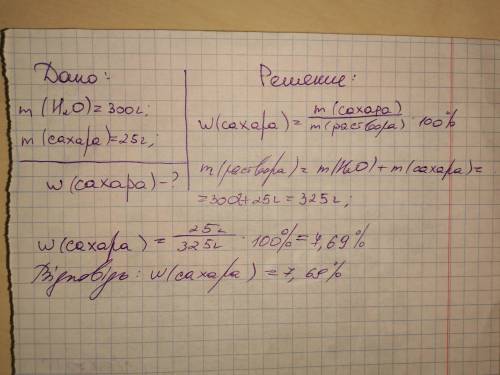 Дано:
m(H₂O)=300г;
m(сахара)=25г;
w(сахара)-?
Решение:
w(сахара)= m(сахара)/m(раствора) · 100%
m(раствора)= m(H₂O)+m(сахара)=
=300г+25г=325г;
w(сахара)= 25г/325г · 100%=7,69%
Відповідь: w(сахара)=7,69%